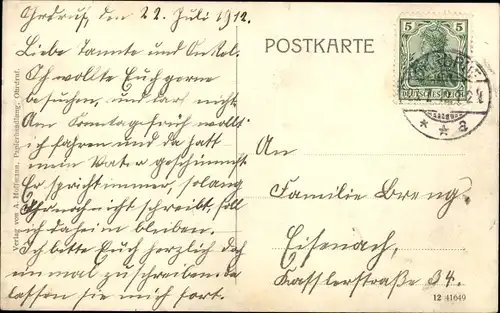 Ohrdruf den 22. Juli 1912.
Liebe Tannte und Onkel.
Ich wollte Euch gerne
besuchen, und darf nicht
Am Sonntag früh wollt
ich fahren und da hatt
mein Vater geschimpft
Er spricht immer, solang
Ihr noch nicht schreibt, soll
ich daheim bleiben.
Ich bitte Euch herzlich doch
einmal zu schreiben. da
lassen sie mich fort.
POSTKARTE
5 5
DEUTSCHES REICH
OHRDRUF
* * a
An
Familie Breng.
Eisenach,
Kasslerstraße 34.
12 41649
Verlag von A. Hoffmann, Papierhandlung, Ohrdruf.